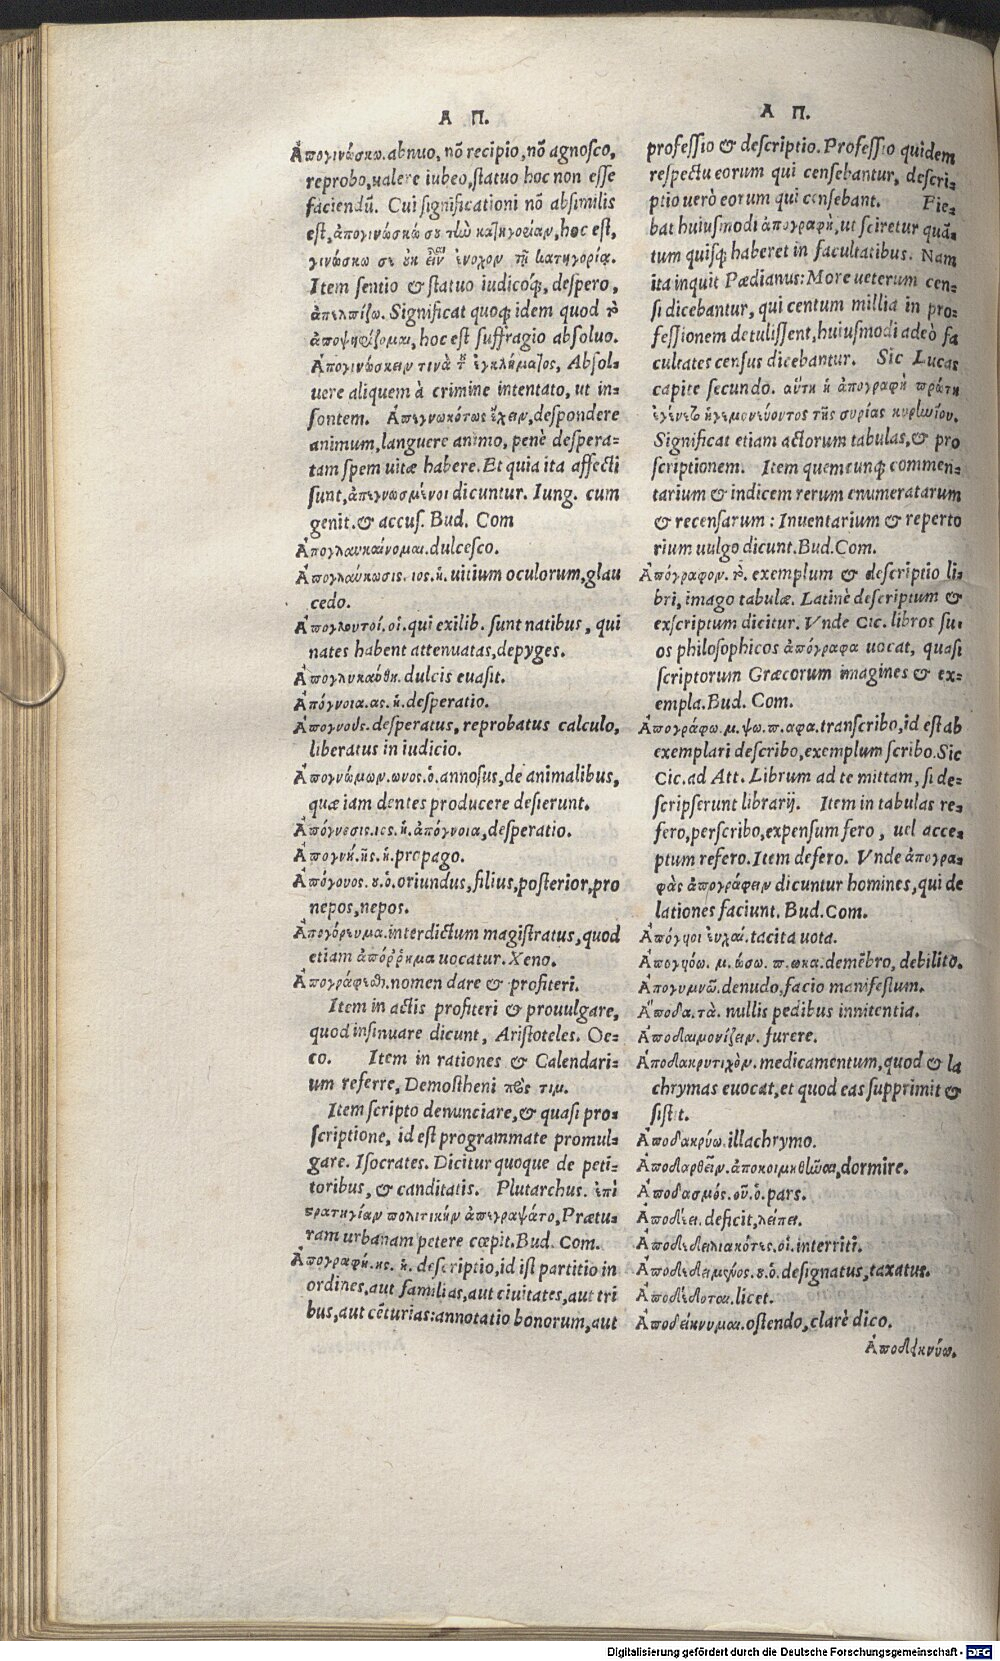 Α Π.
Ἀπογινώσκω. abnuo, nō recipio, nō agnosco,
reprobo, ualere iubeo, statuo hoc non esse
faciendū. Cui significationi nō absimilis
est, ἀπογινώσκω σου τὴν κατηγορίαν, hoc est,
γινώσκω σε οὐκ εἶναι ἔνοχον τῇ κατηγορίᾳ.
Item sentio & statuo iudicóq́ue, despero,
ἀπελπίζω. Significat quoq; idem quod τὸ
ἀποψηφίζομαι, hoc est suffragio absoluo.
Ἀπογινώσκειν τινὰ τοῦ ἐγκλήματος, Absol=
uere aliquem à crimine intentato, ut in=
sontem. Ἀπεγνωκότως ἔχειν, despondere
animum, languere animo, penè despera=
tam spem uitæ habere. Et quia ita affecti
sunt, ἀπεγνωσμένοι dicuntur. Iung. cum
genit. & accus. Bud. Com
Ἀπογλαυκαίνομαι. dulcesco.
Ἀπογλαύκωσις. ιος. ἡ. uitium oculorum, glau
cedo.
Ἀπογλουτοί. οἱ. qui exilib. sunt natibus, qui
nates habent attenuatas, depyges.
Ἀπογλυκάνθη. dulcis euasit.
Ἀπόγνοια. ας. ἡ. desperatio.
Ἀπογνούς. desperatus, reprobatus calculo,
liberatus in iudicio.
Ἀπογνώμων. ωνος. ὁ. annosus, de animalibus,
quæ iam dentes producere desierunt.
Ἀπόγνεσις. ιος. ἡ. ἀπόγνοια, desperatio.
Ἀπογνή. ῆς. ἡ. propago.
Ἀπόγονος. ου. ὁ. oriundus, filius, posterior, pro
nepos, nepos.
Ἀπογόρευμα. interdictum magistratus, quod
etiam ἀπόῤῥημα uocatur. Xeno.
Ἀπογράφεσθαι. nomen dare & profiteri.
Item in actis profiteri & prouulgare,
quod insinuare dicunt, Aristoteles. Oe=
co. Item in rationes & Calendari=
um referre, Demostheni πρὸς τιμ.
Item scripto denunciare, & quasi pro=
scriptione, id est programmate promul=
gare. Isocrates. Dicitur quoque de peti=
toribus, & canditatis. Plutarchus. ἐπὶ
στρατηγίαν πολιτικὴν ἀπεγράψατο, Prætu=
ram urbanam petere cœpit. Bud. Com.
Ἀπογραφή. ῆς. ἡ. descriptio, id est partitio in
ordines, aut familias, aut ciuitates, aut tri
bus, aut cēturias: annotatio bonorum, aut
Α Π.
professio & descriptio. Professio quidem
respectu eorum qui censebantur, descri=
ptio uerò eorum qui censebant. Fie=
bat huiusmodi ἀπογραφή, ut sciretur quā=
tum quisq; haberet in facultatibus. Nam
ita inquit Pædianus: More ueterum cen=
si dicebantur, qui centum millia in pro=
fessionem detulissent, huiusmodi adeò fa
cultates census dicebantur. Sic Lucas
capite secundo. αὕτη ἡ ἀπογραφὴ πρώτη
ἐγένετο ἡγεμονεύοντος τῆς συρίας κυρηνίου.
Significat etiam actorum tabulas, & pro
scriptionem. Item quemcunq; commen=
tarium & indicem rerum enumeratarum
& recensarum: Inuentarium & reperto
rium uulgo dicunt. Bud. Com.
Ἀπόγραφον. τὸ. exemplum & descriptio li=
bri, imago tabulæ. Latinè descriptum &
exscriptum dicitur. Vnde Cic. libros su=
os philosophicos ἀπόγραφα uocat, quasi
scriptorum Græcorum imagines & ex=
empla. Bud. Com.
Ἀπογράφω. μ. ψω. π. αφα. transcribo, id est ab
exemplari describo, exemplum scribo. Sic
Cic. ad Att. Librum ad te mittam, si de=
scripserunt librarij. Item in tabulas re=
fero, perscribo, expensum fero, uel acce=
ptum refero. Item defero. Vnde ἀπογρα=
φὰς ἀπογράφειν dicuntur homines, qui de
lationes faciunt. Bud. Com.
εὐχαί. tacita uota.
Ἀπογυιόω. μ. ώσω. π. ωκα. demēbro, debilito.
Ἀπογυμνῶ. denudo, facio manifestum.
Ἄποδα. τὰ. nullis pedibus innitentia.
Ἀποδαιμονίζειν. furere.
Ἀποδακρυτικὸν. medicamentum, quod & la
chrymas euocat, et quod eas supprimit &
sistit.
Ἀποδακρύω. illachrymo.
Ἀποδαρθεῖν. ἀποκοιμηθῶαι, dormire.
Ἀποδασμός. οῦ. ὁ. pars.
Ἀποδεῖ. deficit, λείπει.
Ἀποδεδειλιακότες. οἱ. interriti.
Ἀποδεδειγμένος. ου. ὁ. designatus, taxatus.
Ἀποδέδοται. licet.
Ἀποδείκνυμαι. ostendo, clarè dico.
Ἀποδεικνύω.
Digitalisierung gefördert durch die Deutsche Forschungsgemeinschaft - DFG